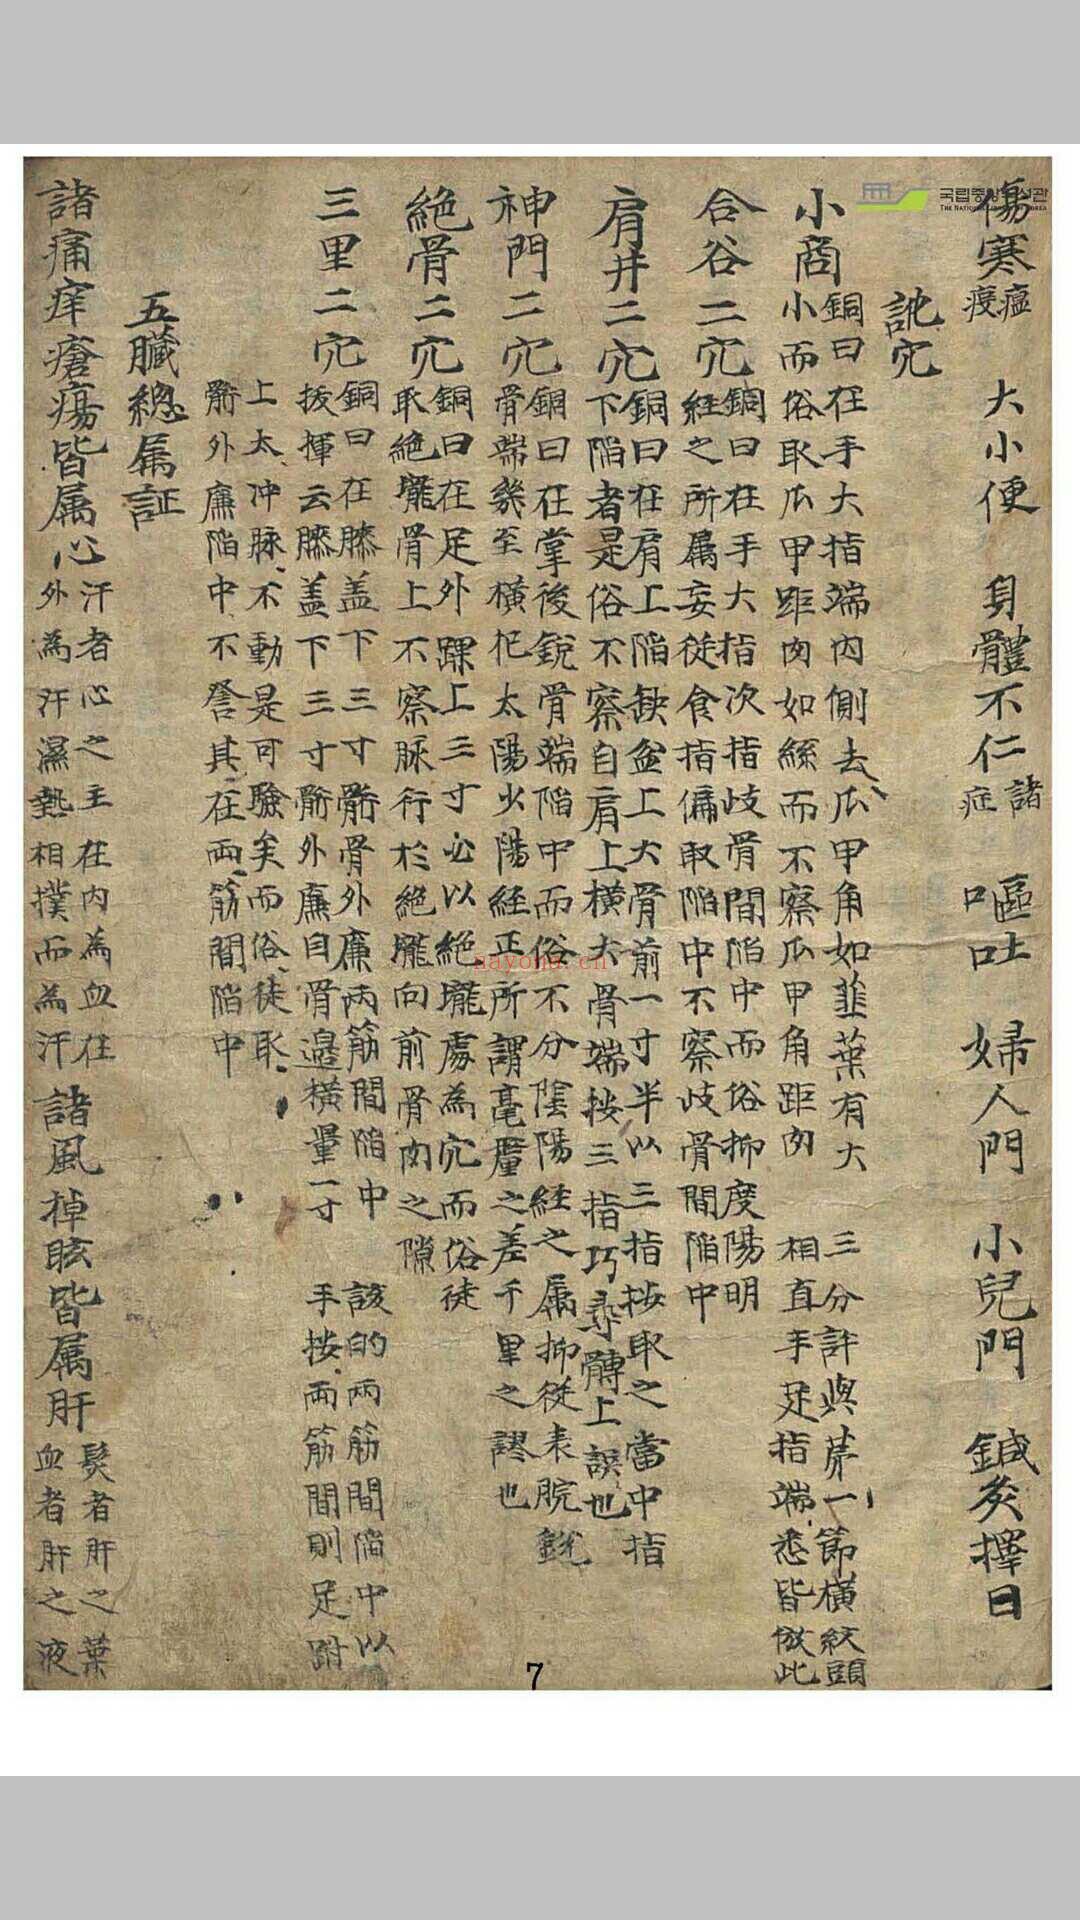 傷寒 瘟疫 大小便 身體不仁 諸症 嘔吐 婦人門 小兒門 鍼灸擇日
訛穴
小商 銅曰在手大指端內側去爪甲角如韭葉有大
小而俗取爪甲距肉如絲而不察爪甲角距肉
三分許與第一節橫紋頭
相直手足指端悉皆倣此
合谷二穴 銅曰在手大指次指歧骨間陷中而俗抑度陽明
經之所属妄徒食指偏取陷中不察歧骨間陷中
肩井二穴 銅曰在肩上陷缺盆上大骨前一寸半以三指按取之當中指
下陷者是俗不察自肩上橫大骨端按三指巧尋髆上誤也
神門二穴 銅曰在掌後銳骨端陷中而俗不分陰陽経之属抑従表腕銳
骨端幾至橫犯太陽少陽経正所謂毫釐之差千里之謬也
絶骨二穴 銅曰在足外踝上三寸必以絶壠處為穴而俗徒
取絶壠骨上不察脉行於絶壠向前骨肉之隙
三里二穴 銅曰在膝盖下三寸䯒骨外廉两筋間陷中
拔擇云膝盖下三寸䯒外廉自骨邉橫量一寸
該的两筋間陷中以
手按两筋間則足跗
上太冲脉不動是可驗矣而俗徒取
䯒外廉陷中不詧其在两筋間陷中
五臟總属証
諸痛痒瘡瘍皆属心 汗者心之主在内為血在
外為汗濕熱相撲而為汗
諸風掉眩皆属肝 髮者肝之葉
血者肝之液
국립중앙도서관
THE NATIONAL LIBRARY OF KOREA
nayona.cn
7